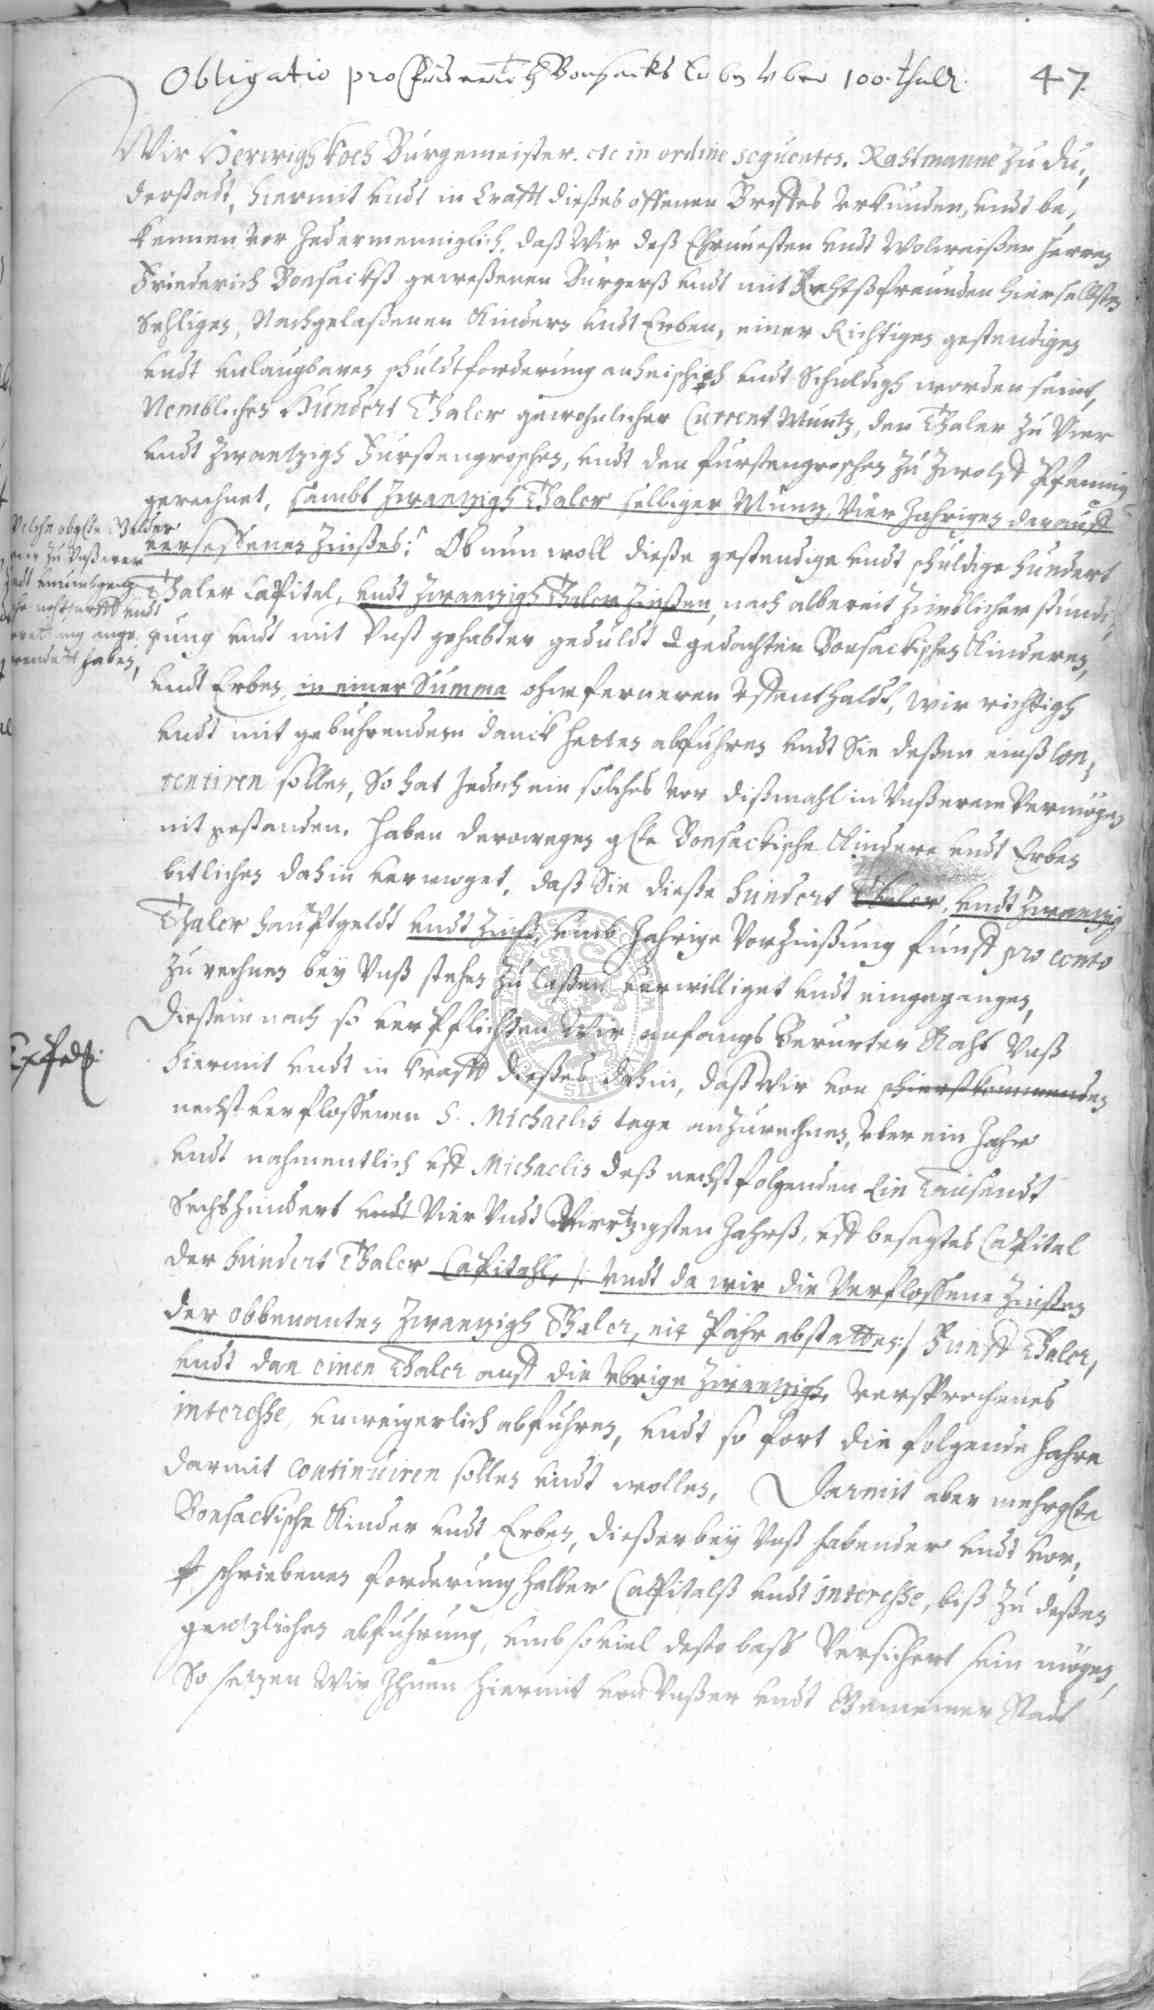 Obligatio pro Friederich Bonsacks Erben über 100. thaler. 47.
Wir Herwigh Koch Bürgemeister. etc in ordine sequentes. Rahtmanne zu Du,,
derstadt, hiermit undt in Crafft dießes offenen Brieffes Urkunden, undt be,
kennen vor Jedermenniglich, daß Wir deß Ehrnuesten undt Wolweißen Herren
Friederich Bonsackß gewesenen Bürgerß undt mit Rahtßfreunden hierselbsten
Sehligen, Nachgelaßenen Kindern undt Erben, einer Richtigen gestendigen
undt unlaugbaren schuldtforderung anheischigh undt Schuldigh worden seint,
Nemblichen Hundert Thaler gewohnlicher Current Muntz, den Thaler zu Vier
undt zwantzigh Fürstengroschen, undt den fürstengroschen zu zwolff Pfening
gerechnet, sambt zwantzigh Thaler selbiger Muntz, Vier Jahrigen darauff
versessenen Zinßes: Ob nun woll dieße gestendige undt schuldige hundert
Thaler Capital, undt zwantzigh Thaler Zinßen, nach albereit
gung undt mit Vnß gehabter gedult gedachten Bonsackischen Kinderen,
undt Erben, in einer Summa ohne ferneren Uffenthaldt, wir richtigh
undt mit gebührendem danck hetten abführen undt Sie deßen einß Con,
tentiren sollen, So hat Jedoch ein solches vor dißmahl in Vnßerem Vermögen
nit gestanden, haben derowegen gte Bonsackische Kindere undt Erben
bitlichen dahin vermoget, daß Sie dieße hundert Thaler, undt zwanzig
Thaler hauptgeldt undt Zinß, umb Jahrige Vorzinßung funff pro cento
zu rechnen bey Vnß stehen zu laßen verwilliget undt eingegangen,
Dießem nach so verpflichten Wir anfangs Berurter Raht Vnß
hiermit undt in krafft dießes dahin, daß Wir von schierstkommenden
nechst verflossenen S. Michaelis tage anzurechnen, vber ein Jahr
undt nahmentlich vff Michaelis deß nechstfolgenden Ein Tausendt
Sechshundert undt Vier Vndt Viertzigsten Jahrß, vff besagtes Capital
der hundert Thaler Capitahl, /: undt da wir die Verflossene Zinßen
der obbenanten zwantzigh Thaler, nit Pahr abstatten :/ Funff Thaler,
undt dan einen Thaler auff die vbrige zwantzigh, versprochenes
interesse, unweigerlich abführen, undt so fort die folgende Jahre
darmit continuiren sollen undt wollen, Darmit aber mehrgte
Bonsackische Kinder undt Erben, dießer bey Vnß habender undt vor,
schriebenen forderung halber Capitalß undt interesse, biß zu deßen
gentzlichen abführung, umb soviel desto baß Versichert sein mögen,
So setzen Wir Ihnen hiermit von Vnßer undt Gemeiner Stadt
Welche obgte Gelder